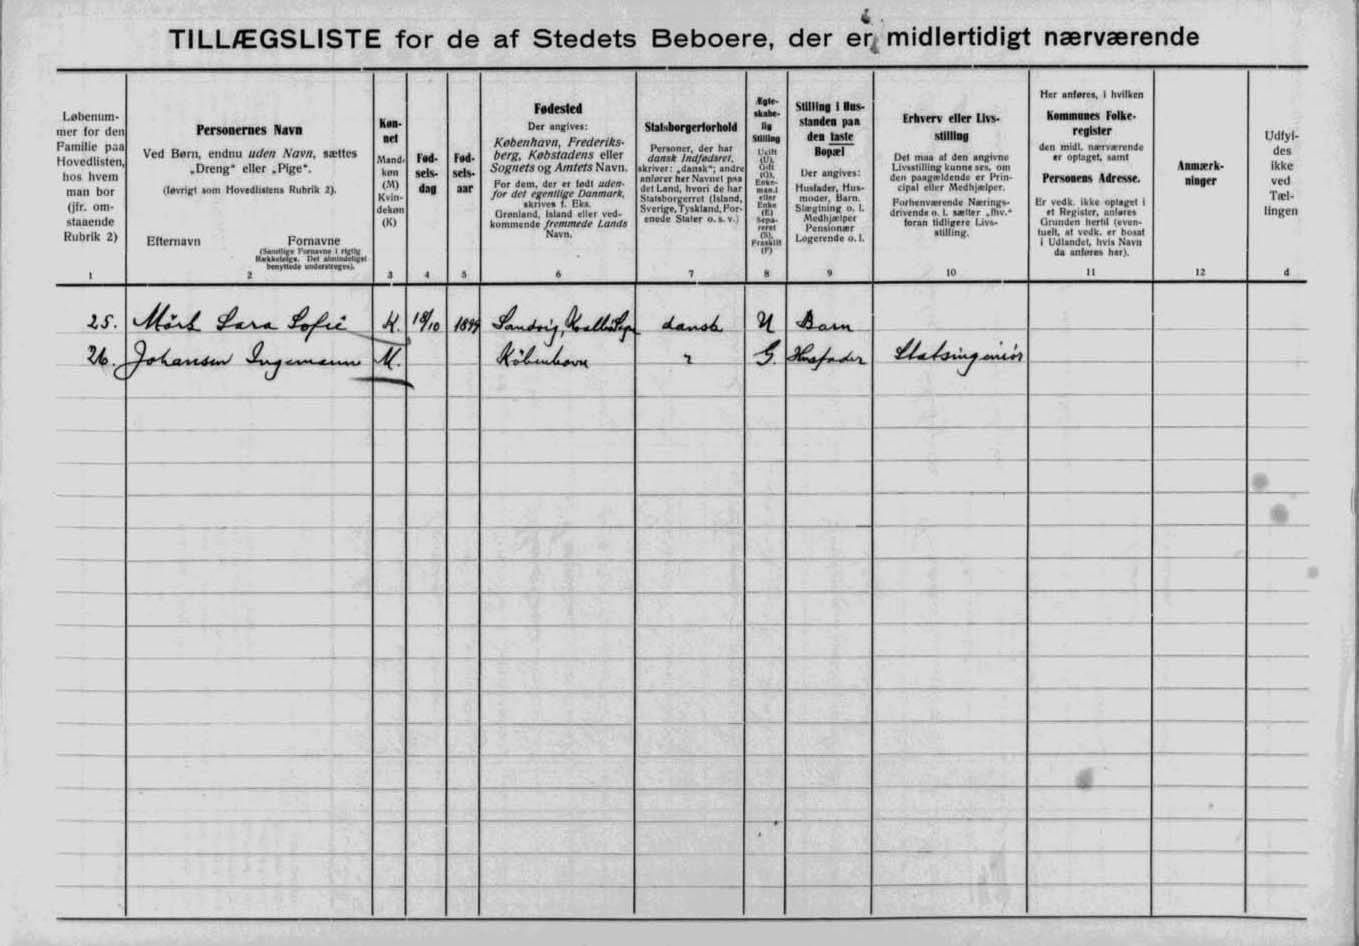 TILLÆGSLISTE for de af Stedets Beboere, der er midlertidigt nærværende
Løbenum-
mer for den
Familie paa
Hovedlisten,
hos hvem
man bor
(jfr. om-
staaende
Rubrik 2)
Personernes Navn
Ved Børn, endnu uden Navn, sættes
„Dreng“ eller „Pige“.
(Iøvrigt som Hovedlistens Rubrik 2).
Efternavn Fornavne
(Samtlige Fornavne i rigtig
Rækkefølge. Det almindeligst
benyttede understreges).
Køn-
net
Mand-
køn
(M)
Kvin-
dekøn
(K)
Fød-
sels-
dag
Fød-
sels-
aar
Fødested
Der angives:
København, Frederiks-
berg, Købstadens eller
Sognets og Amtets Navn.
For dem, der er født uden-
for det egentlige Danmark,
skrives f. Eks.
Grønland, Island eller ved-
kommende fremmede Lands
Navn.
Statsborgerforhold
Personer, der har
dansk Indfødsret,
skriver: „dansk“; andre
anfører her Navnet paa
det Land, hvori de har
Statsborgerret (Island,
Sverige, Tyskland, For-
enede Stater o. s. v.)
Ægte-
skabe-
lig
Stilling
Ugift
(U),
Gift
(G),
Enke-
mand
eller
Enke
(E)
Sepa-
reret
(S),
Fraskilt
(F)
Stilling i Hus-
standen paa
den faste
Bopæl
Der angives:
Husfader, Hus-
moder, Barn,
Slægtning o. l.
Medhjælper
Pensionær
Logerende o. l.
Erhverv eller Livs-
stilling
Det maa af den angivne
Livsstilling kunne ses, om
den paagældende er Prin-
cipal eller Medhjælper.
Forhenværende Nærings-
drivende o. l. sætter „fhv.“
foran tidligere Livs-
stilling.
Her anføres, i hvilken
Kommunes Folke-
register
den midl. nærværende
er optaget, samt
Personens Adresse.
Er vedk. ikke optaget i
et Register, anføres
Grunden hertil (even-
tuelt, at vedk. er bosat
i Udlandet, hvis Navn
da anføres her).
Anmærk-
ninger
Udfyl-
des
ikke
ved
Tæl-
lingen
1 2 3 4 5 6 7 8 9 10 11 12 d
25. Mørk Sara Sofie K. 18/10 1899 Sandvig, dansk U Barn
26. Johansen Ingemann M. København " G. Husfader Statsingeniør